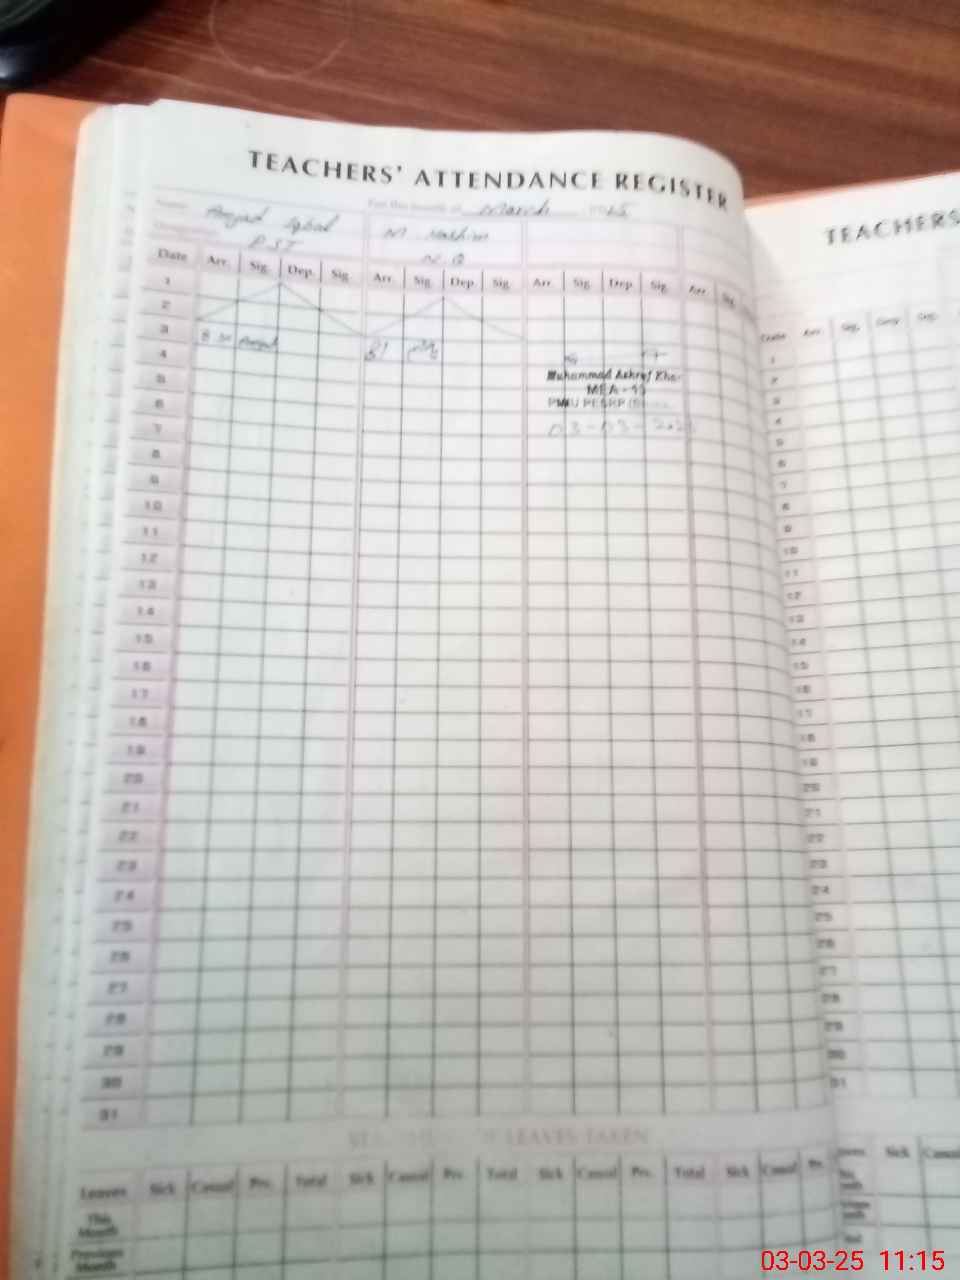 TEACHERS' ATTENDANCE REGISTER
Name Amjad Iqbal For the month of March
PST
M Hashim
N.Q
Date Arr. Sig. Dep. Sig. Arr. Sig. Dep. Sig. Arr. Sig. Dep. Sig. Arr. Sig.
1
2
3 Amjad
4
5
6
7
8
9
10
11
12
13
14
15
16
17
18
19
20
21
22
23
24
25
26
27
28
29
30
31
Muhammad Ashraf
MEA-
PMIU PESRP
03-03-
LEAVES TAKEN
Leaves Sick Casual Prv. Total Sick Casual Prv. Total Sick Casual Prv. Total Sick Casual Prv.
This Month
Previous Month
TEACHERS
Date Arr. Sig. Dep. Sig.
1
2
3
4
5
6
7
8
9
10
11
12
13
14
15
16
17
18
19
20
21
22
23
24
25
26
27
28
29
30
31
Sick Casual
03-03-25 11:15